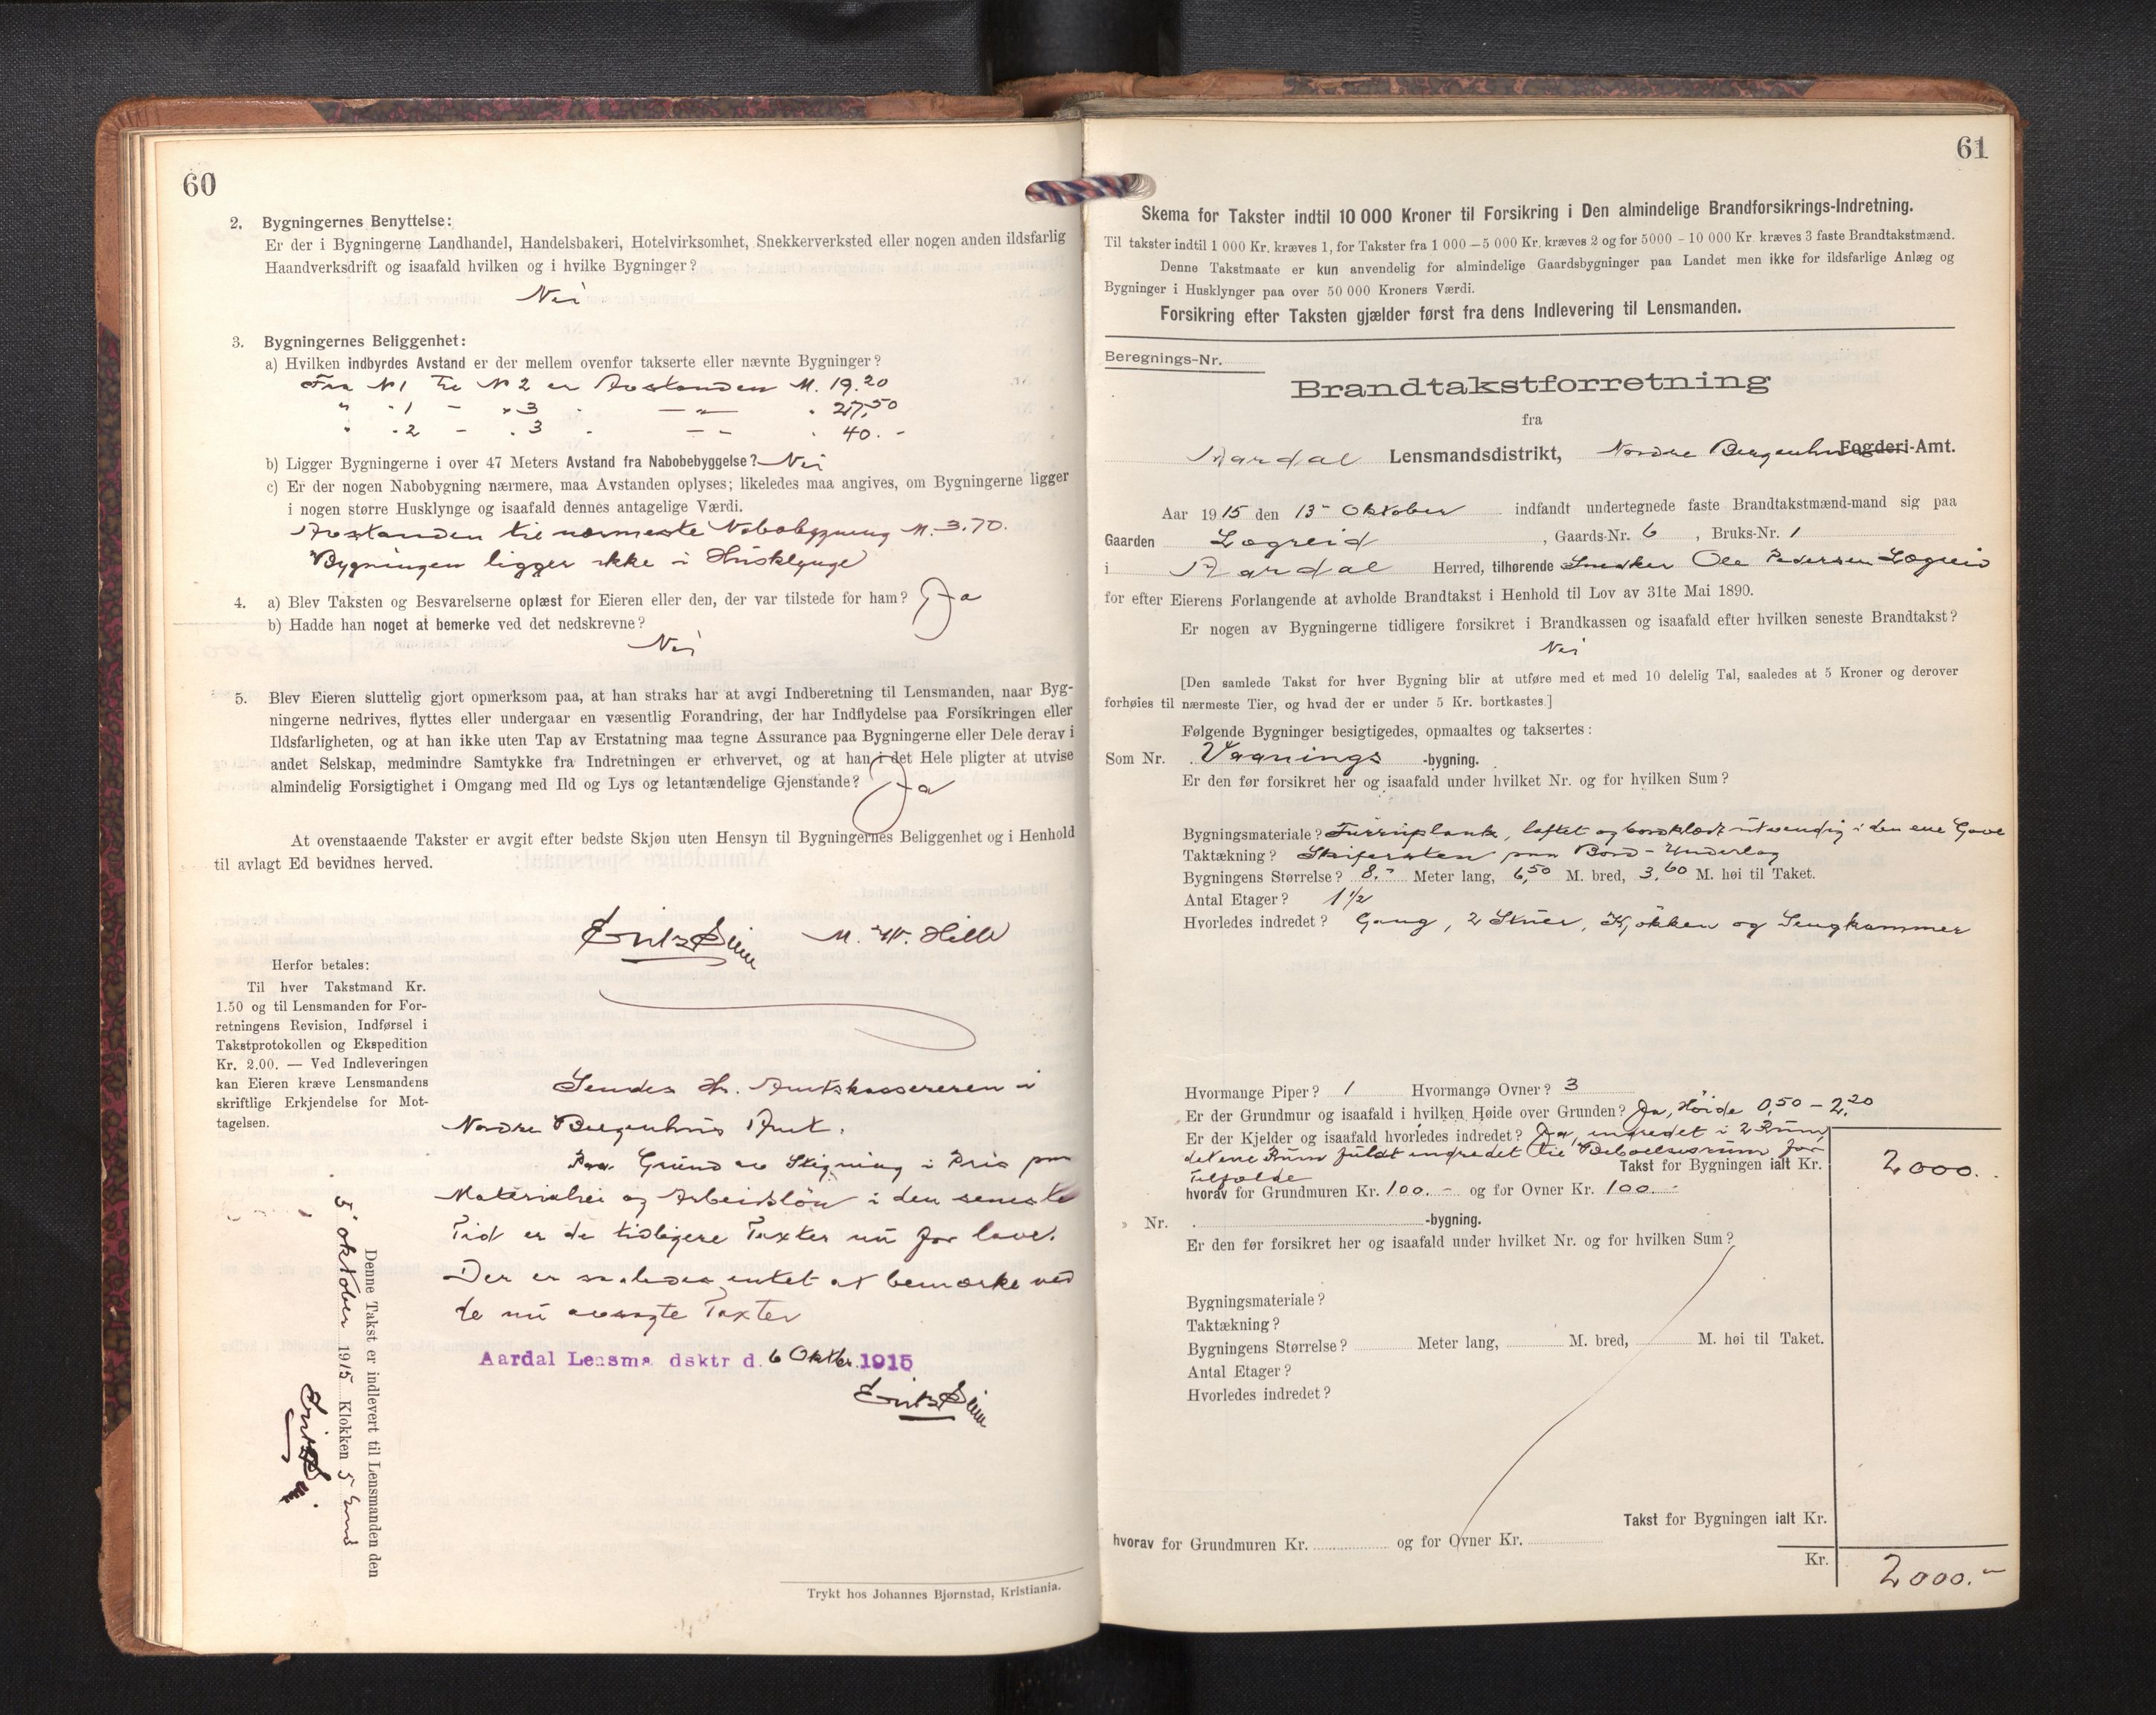 60
2. Bygningernes Benyttelse:
Er der i Bygningerne Landhandel, Handelsbakeri, Hotelvirksomhet, Snekkerverksted eller nogen anden ildsfarlig
Haandverksdrift og isaafald hvilken og i hvilke Bygninger?
Nei
3. Bygningernes Beliggenhet:
a) Hvilken indbyrdes Avstand er der mellem ovenfor takserte eller nævnte Bygninger?
Fra N 1 til N 2 er Avstanden M. 19.20
" " 1 - " 3 " — " — " 27,50
" " 2 - " 3 " — " — " 40. -
b) Ligger Bygningerne i over 47 Meters Avstand fra Nabobebyggelse? Nei
c) Er der nogen Nabobygning nærmere, maa Avstanden oplyses; likeledes maa angives, om Bygningerne ligger
i nogen større Husklynge og isaafald dennes antagelige Værdi.
Avstanden til nærmeste Nabobygning M. 3.70.
Bygningen ligger ikke i Husklynge
4. a) Blev Taksten og Besvarelserne oplæst for Eieren eller den, der var tilstede for ham? Ja
b) Hadde han noget at bemerke ved det nedskrevne?
Nei
5. Blev Eieren sluttelig gjort opmerksom paa, at han straks har at avgi Indberetning til Lensmanden, naar Byg-
ningerne nedrives, flyttes eller undergaar en væsentlig Forandring, der har Indflydelse paa Forsikringen eller
Ildsfarligheten, og at han ikke uten Tap av Erstatning maa tegne Assurance paa Bygningerne eller Dele derav i
andet Selskap, medmindre Samtykke fra Indretningen er erhvervet, og at han i det Hele pligter at utvise
almindelig Forsigtighet i Omgang med Ild og Lys og letantændelige Gjenstande? Ja
At ovenstaaende Takster er avgit efter bedste Skjøn uten Hensyn til Bygningernes Beliggenhet og i Henhold
til avlagt Ed bevidnes herved.
M. W. Hille
Herfor betales:
Til hver Takstmand Kr.
1.50 og til Lensmanden for For-
retningens Revision, Indførsel i
Takstprotokollen og Ekspedition
Kr. 2.00. — Ved Indleveringen
kan Eieren kræve Lensmandens
skriftlige Erkjendelse for Mot-
tagelsen.
Sendes Hr. Amtskassereren i
Nordre Bergenhus Amt.
Paa Grund av Stigning i Pris paa
Materialier og Arbeidsløn i den seneste
Tid er de tidligere Taxter nu for lave.
Der er saaledes intet at bemærke ved
de nu avsagte Taxter
Aardal Lensma dsktr d. 6 Oktbr. 1915
Denne Takst er indlevert til Lensmanden den
5 oktober 1915 Klokken 5 Emd
Trykt hos Johannes Bjørnstad, Kristiania.
61
Skema for Takster indtil 10 000 Kroner til Forsikring i Den almindelige Brandforsikrings-Indretning.
Til takster indtil 1 000 Kr. kræves 1, for Takster fra 1 000 — 5 000 Kr. kræves 2 og for 5000 - 10 000 Kr. kræves 3 faste Brandtakstmænd.
Denne Takstmaate er kun anvendelig for almindelige Gaardsbygninger paa Landet men ikke for ildsfarlige Anlæg og
Bygninger i Husklynger paa over 50 000 Kroners Værdi.
Forsikring efter Taksten gjælder først fra dens Indlevering til Lensmanden.
Beregnings-Nr.
Brandtakstforretning
fra
Aardal Lensmandsdistrikt, Nordre Bergenhus Fogderi-Amt.
Aar 1915 den 13 - Oktober indfandt undertegnede faste Brandtakstmænd-mand sig paa
Gaarden Lægreid, Gaards-Nr. 6, Bruks-Nr. 1
i Aardal Herred, tilhørende Snedker Ole Pedersen Lægreid
for efter Eierens Forlangende at avholde Brandtakst i Henhold til Lov av 31te Mai 1890.
Er nogen av Bygningerne tidligere forsikret i Brandkassen og isaafald efter hvilken seneste Brandtakst?
Nei
[Den samlede Takst for hver Bygning blir at utføre med et med 10 delelig Tal, saaledes at 5 Kroner og derover
forhøies til nærmeste Tier, og hvad der er under 5 Kr. bortkastes.]
Følgende Bygninger besigtigedes, opmaaltes og taksertes:
Som Nr. Vaanings -bygning.
Er den før forsikret her og isaafald under hvilket Nr. og for hvilken Sum?
Bygningsmateriale? Furruplank, laftet og bordklædt utvendig i den ene Gavl
Taktækning? Skifersten paa Bord-Underlag
Bygningens Størrelse? 8.- Meter lang, 6,50 M. bred, 3,60 M. høi til Taket.
Antal Etager? 1 1/2
Hvorledes indret? Gang, 2 Stuer, Kjøkken og Sengkammer
Hvormange Piper? 1 Hvormange Ovner? 3
Er der Grundmur og isaafald i hvilken Høide over Grunden? Ja, Høide 0,50 - 2,20
Er der Kjelder og isaafald hvorledes indredet? Ja, indredet i 2 Rum,
det ene Rum fuldt indredet til Beboelsesrum for
Tilfælde
Takst for Bygningen ialt Kr. 2000.
hvorav for Grundmuren Kr. 100. - og for Ovner Kr. 100. -
" Nr. -bygning.
Er den før forsikret her og isaafald under hvilket Nr. og for hvilken Sum?
Bygningsmateriale?
Taktækning?
Bygningens Størrelse? Meter lang, M. bred, M. høi til Taket.
Antal Etager?
Hvorledes indredet?
Takst for Bygningen ialt Kr.
hvorav for Grundmuren Kr. og for Ovner Kr.
Kr. 2000.-